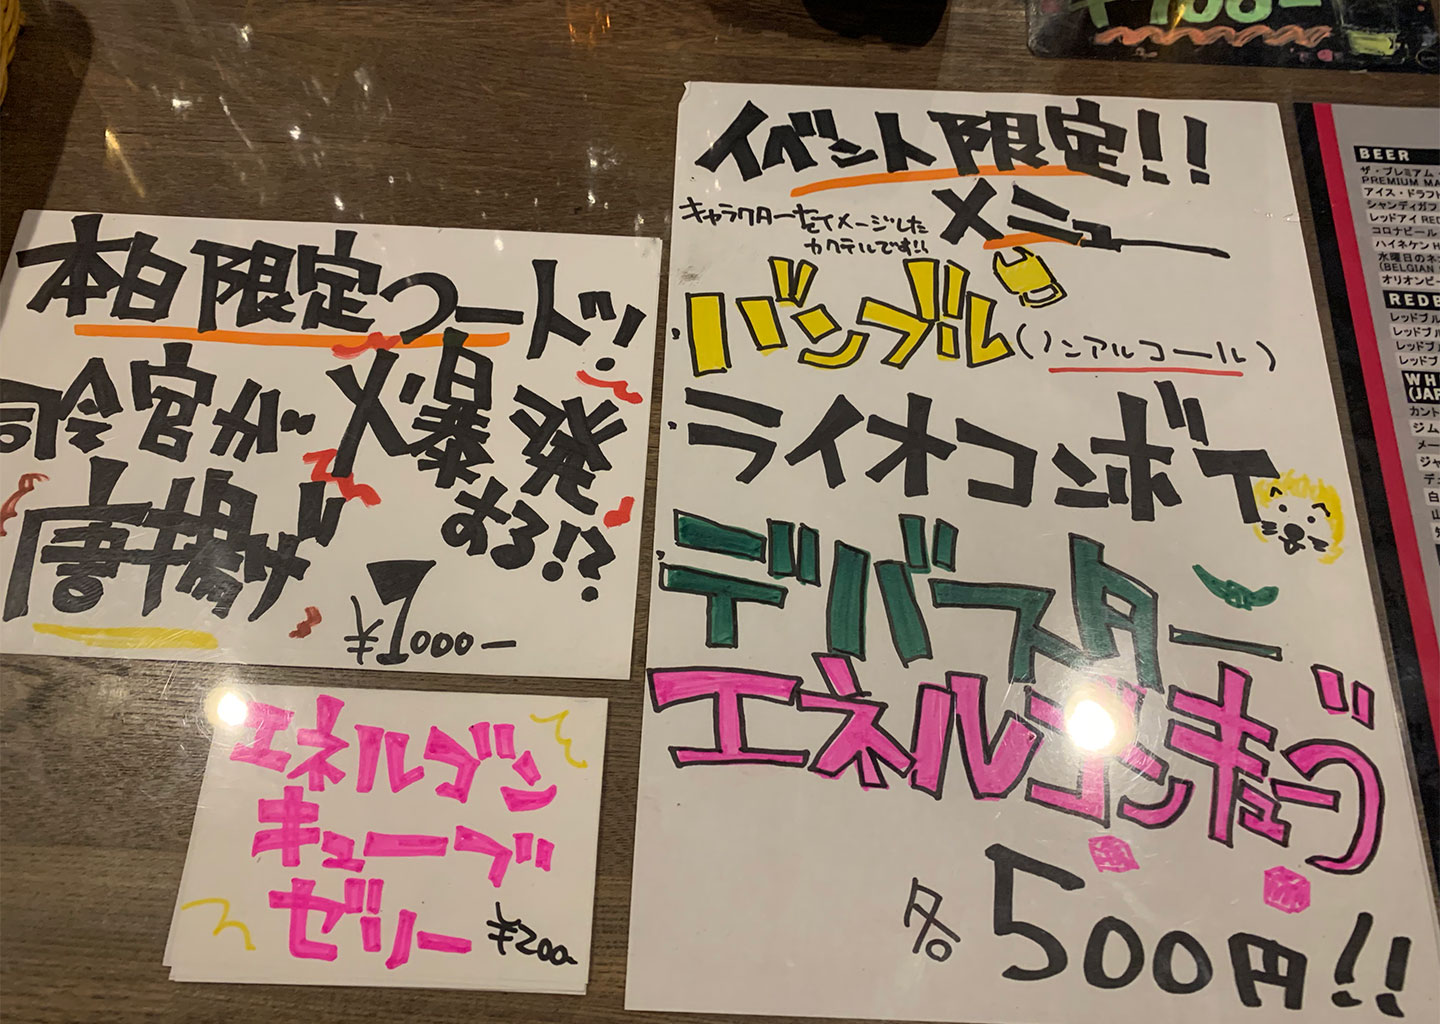 本日限定フード!!
司令官が爆発
する!?
唐揚げ
¥1000-
エネルゴン
キューブ
ゼリー
¥200-
イベント限定!!
メニュー
キャラクターをイメージした
カクテルです!!
バンブル(ノンアルコール)
ライオコンボイ
デバスター
エネルゴンキューブ
各500円!!
BEER
ザ・プレミアム
PREMIUM MA
アイス・ドラフト
シャンディガフ
レッドアイ RED
コロナビール
ハイネケン H
水曜日のネ
(BELGIAN
オリオンビー
REDB
レッドブル
レッドブル
レッドブ
レッドブ
WH
(JAP
カント
ジム
メー
ジャ
デュ
白
山
知